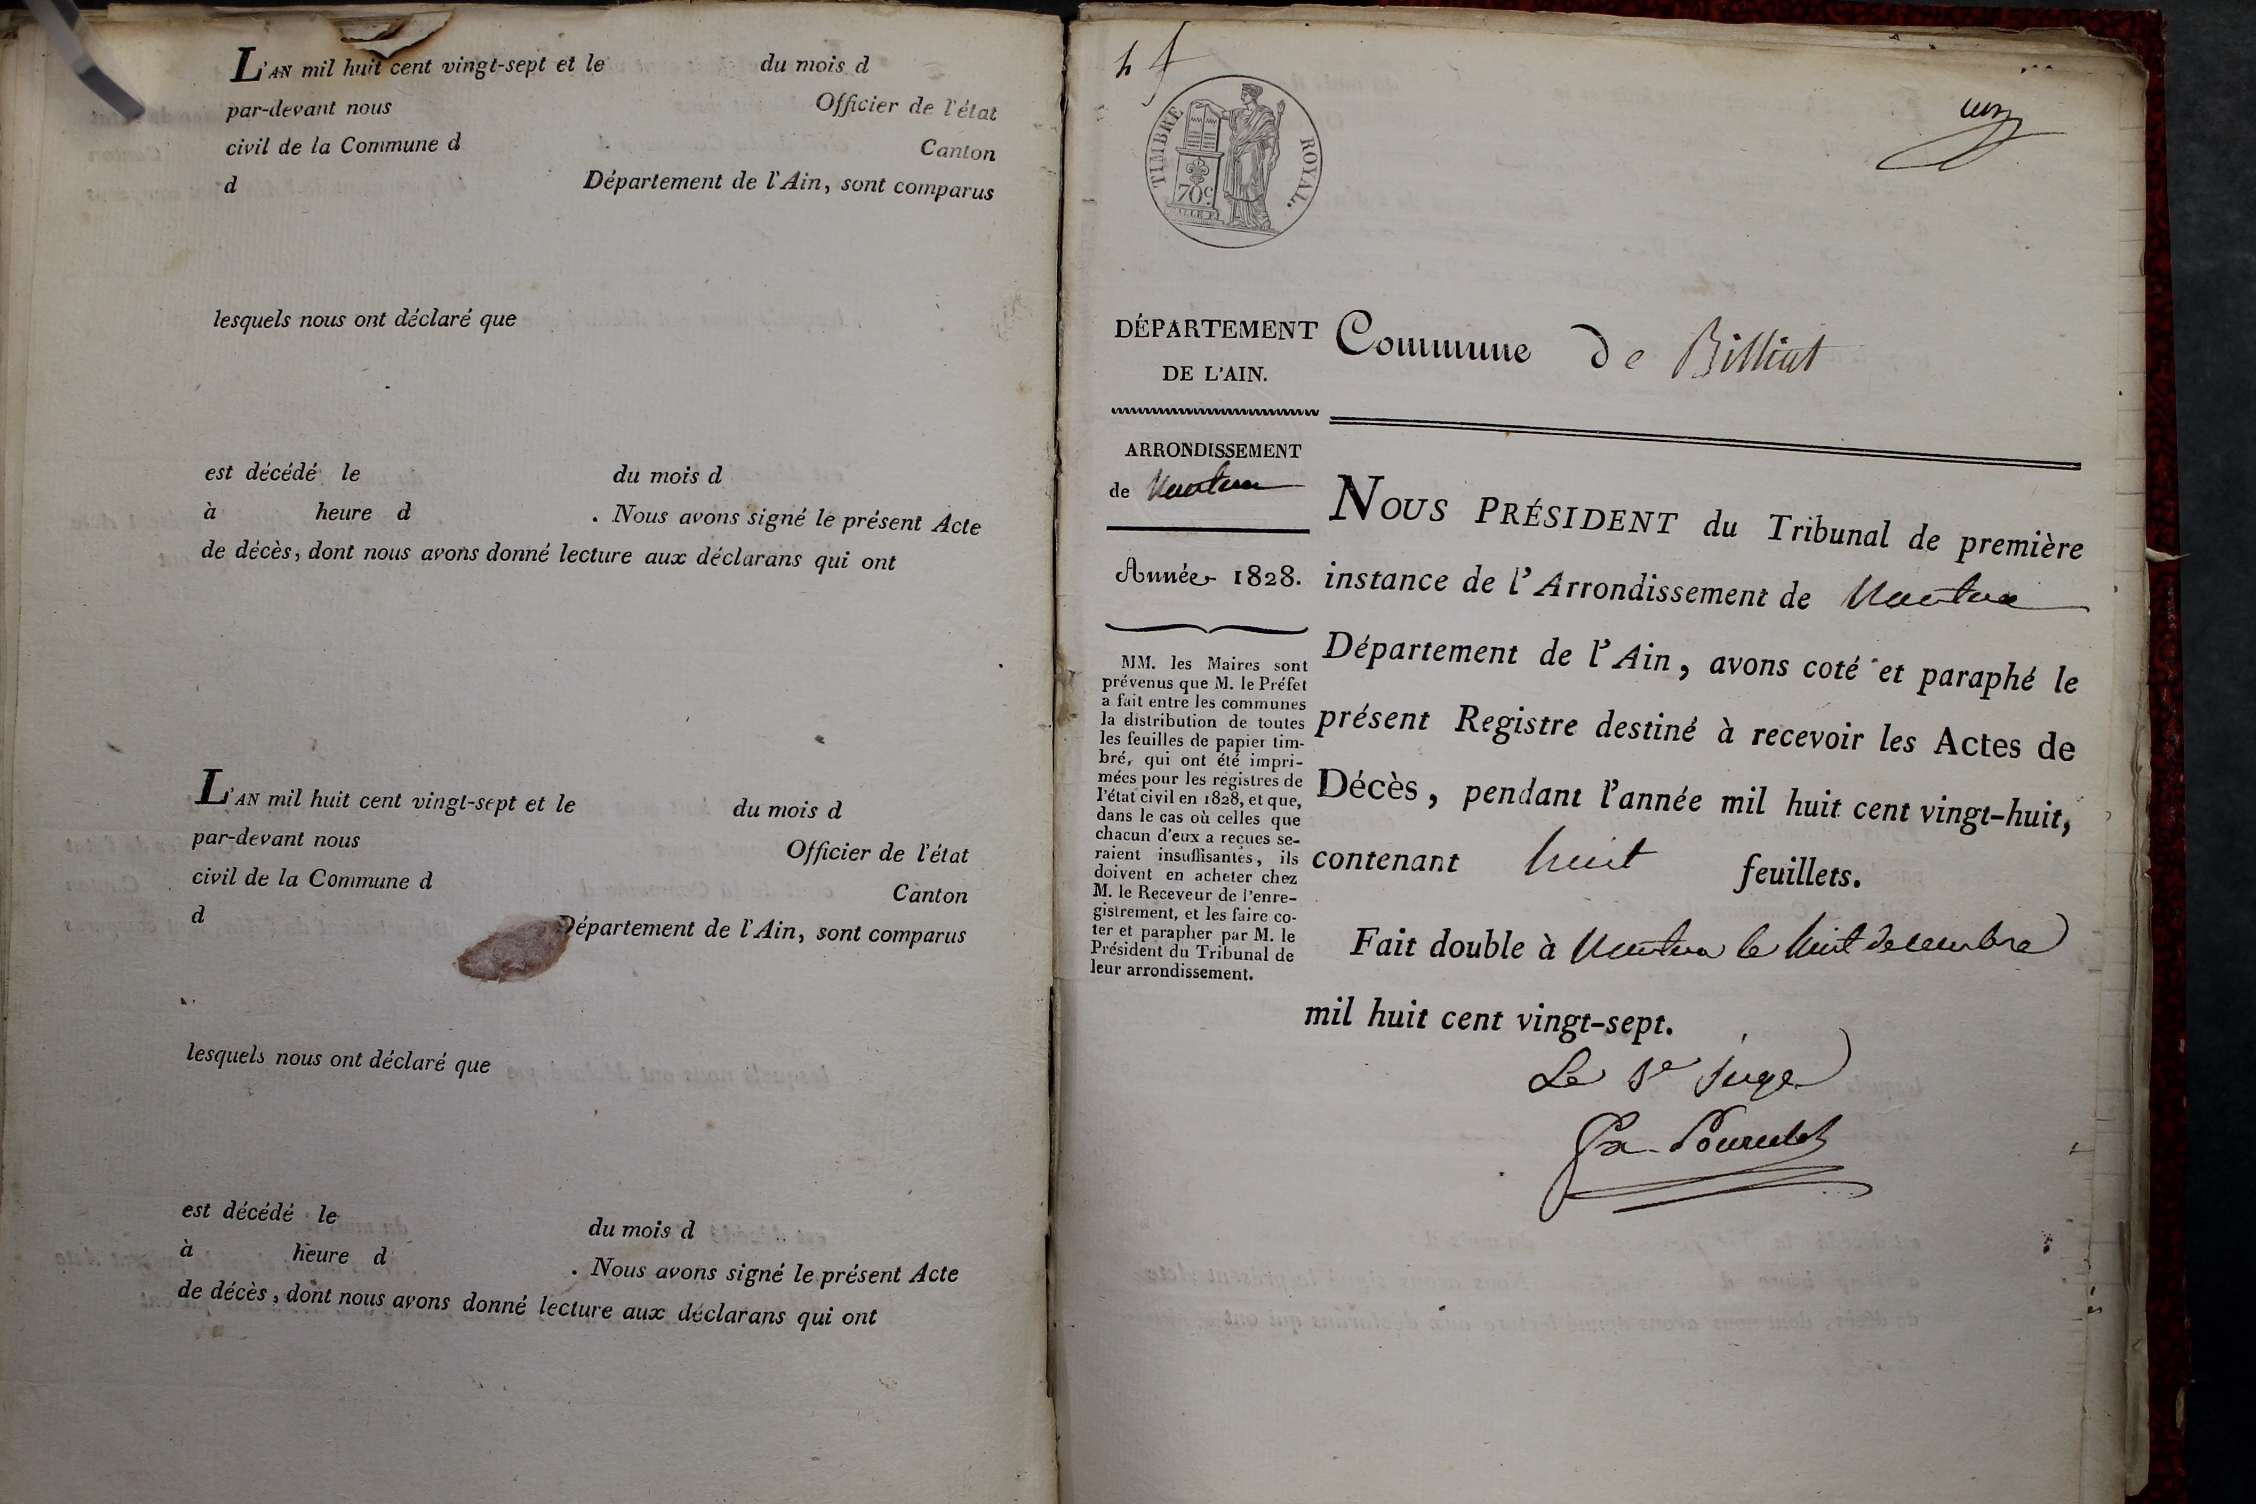 L'AN mil huit cent vingt-sept et le du mois d
par-devant nous Officier de l'état
civil de la Commune d Canton
d Département de l'Ain, sont comparus
lesquels nous ont déclaré que
est décédé le du mois d
à heure d . Nous avons signé le présent Acte
de décès, dont nous avons donné lecture aux déclarans qui ont
L'AN mil huit cent vingt-sept et le du mois d
par-devant nous Officier de l'état
civil de la Commune d Canton
d Département de l'Ain, sont comparus
lesquels nous ont déclaré que
est décédé le du mois d
à heure d . Nous avons signé le présent Acte
de décès, dont nous avons donné lecture aux déclarans qui ont
TIMBRE ROYAL.
70c.
DÉPARTEMENT
DE L'AIN.
ARRONDISSEMENT
de Nantua
Année 1828.
MM. les Maires sont
prévenus que M. le Préfet
a fait entre les communes
la distribution de toutes
les feuilles de papier tim-
bré, qui ont été impri-
mées pour les registres de
l'état civil en 1828, et que,
dans le cas où celles que
chacun d'eux a reçues se-
raient insuffisantes, ils
doivent en acheter chez
M. le Receveur de l'enre-
gistrement, et les faire co-
ter et parapher par M. le
Président du Tribunal de
leur arrondissement.
Commune de Billiat
NOUS PRÉSIDENT du Tribunal de première
instance de l'Arrondissement de Nantua
Département de l'Ain, avons coté et paraphé le
présent Registre destiné à recevoir les Actes de
Décès, pendant l'année mil huit cent vingt-huit,
contenant huit feuillets.
Fait double à Nantua le huit decembre
mil huit cent vingt-sept.
Le Juge